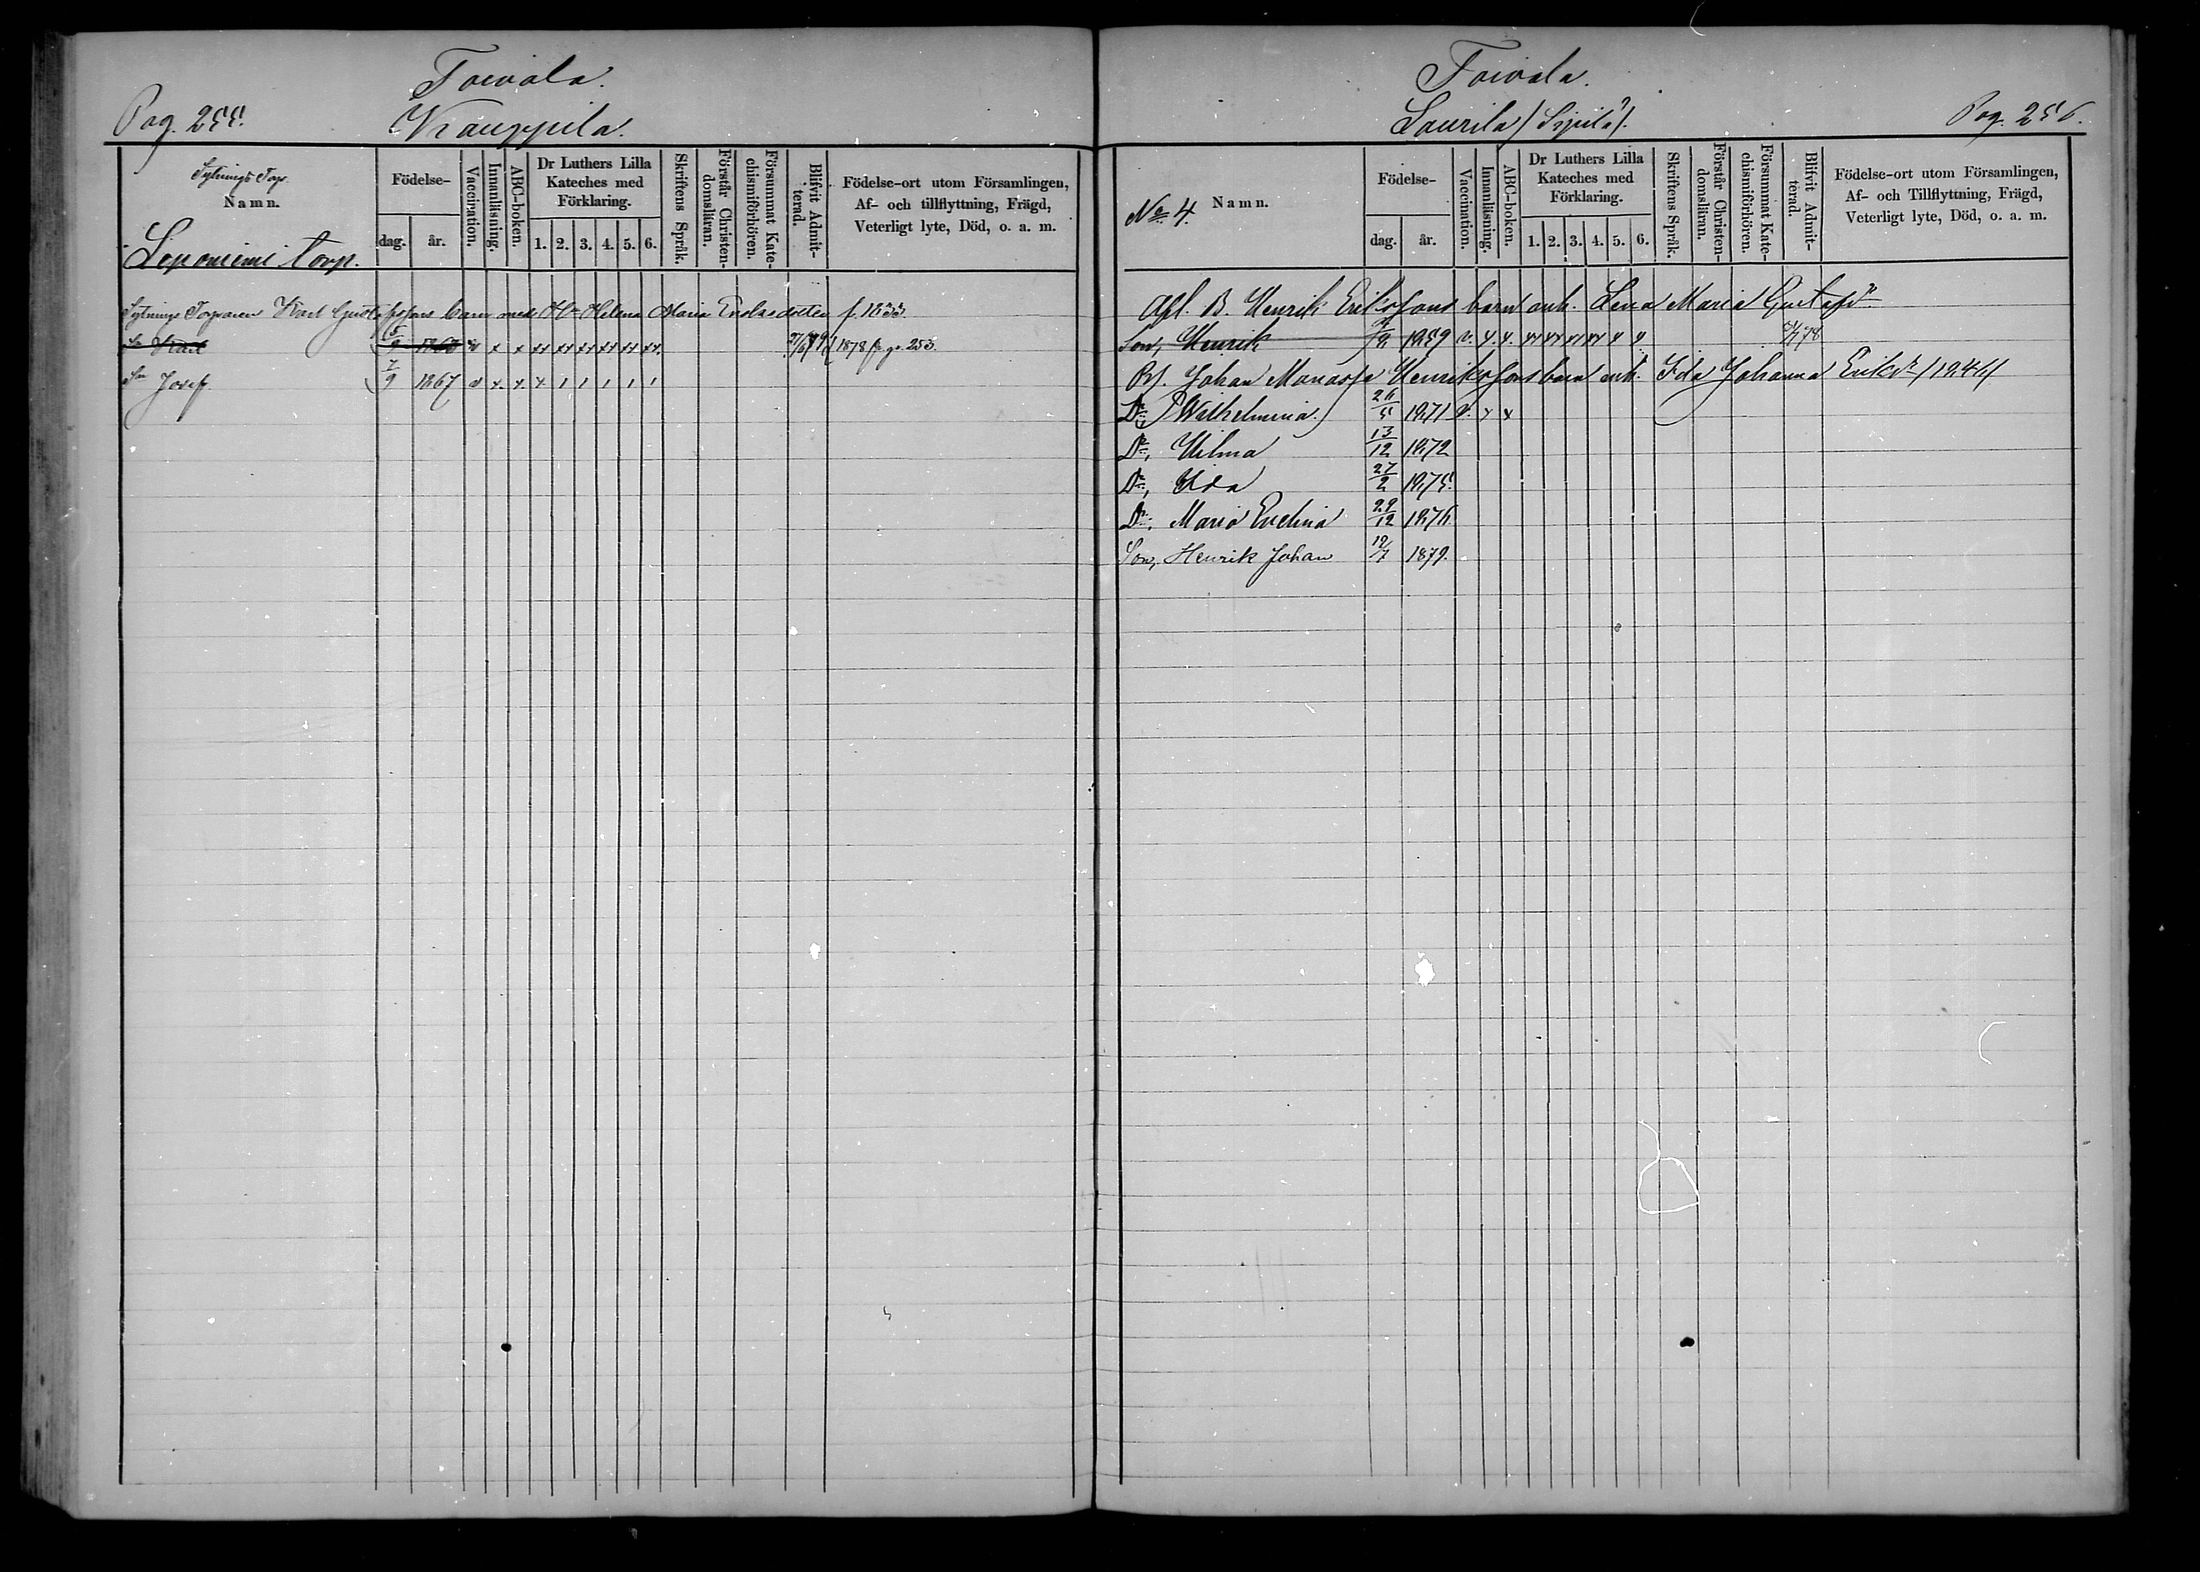 Toivola.
Krauppila.
Pag. 255.
Sytnings Torp.
Namn.
Födelse-
dag.
år.
Vaccination.
Innanläsning.
ABC-boken.
Dr Luthers Lilla Kateches med Förklaring.
1. 2. 3. 4. 5. 6.
Skriftens Språk.
Förstår Christendomsläran.
Försummat Katechismiförhören.
Blifvit Admitterad.
Födelse-ort utom Församlingen,
Af- och tillflyttning, Frägd,
Veterligt lyte, Död, o. a. m.
torp.
Sytnings Torparen Karl Gustafssons barn med H. Helena Maria f. 1833
Sn Karl 1860 v x x xx xx xx xx xx xx 1878 pag. 253.
Sn Josef 7/9 1867 v x x x 1 1 1 1 1
Toivola.
Laurila /Sipilä/.
Pag. 256.
No 4.
Namn.
Födelse-
dag.
år.
Vaccination.
Innanläsning.
ABC-boken.
Dr Luthers Lilla Kateches med Förklaring.
1. 2. 3. 4. 5. 6.
Skriftens Språk.
Förstår Christendomsläran.
Försummat Katechismiförhören.
Blifvit Admitterad.
Födelse-ort utom Församlingen,
Af- och Tillflyttning, Frägd,
Veterligt lyte, Död, o. a. m.
Afl. B. Henrik Erikssons barn enk. Lena Maria Gustafsdr
Son, Henrik 1859 v. x. x. xx xx xx xx x x 78
Bf. Johan Manasse Henrikssons barn enk. Ida Johanna Eriksdr /1844/
Dr, Wilhelmina 26/5 1871 v. x x
Dr, Hilma 13/12 1872
Dr, Ida 27/2 1875.
Dr, Maria Evelina 29/12 1876
Son, Henrik Johan 19/7 1879.